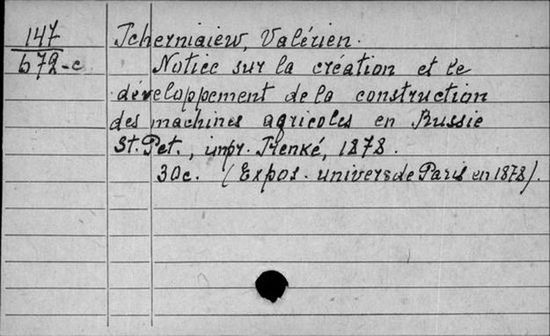 147 Tcherniaiew, Valérien.
b72-c Notice sur la création et le
développement de la construction
des machines agricoles en Russie
St. Pet., impr. Trenké, 1878.
30c. (Expos. univers de Paris en 1878).